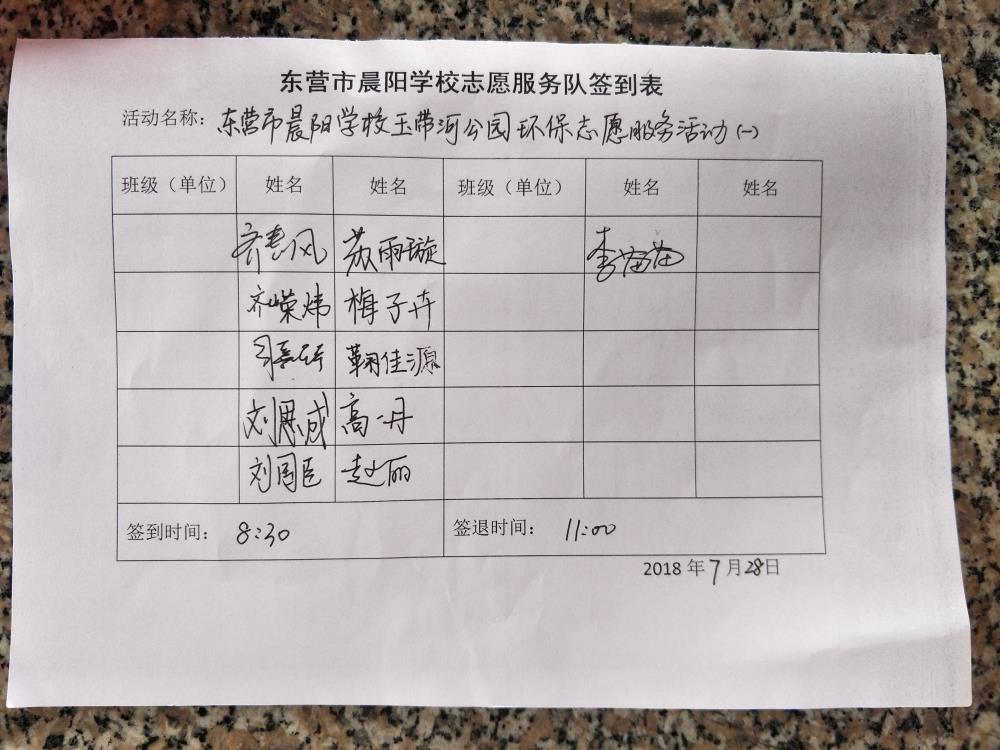 东营市晨阳学校志愿服务队签到表
活动名称：东营市晨阳学校玉带河公园环保志愿服务活动(一)
班级（单位） 姓名 姓名 班级（单位） 姓名 姓名
齐 风 苏雨璇 李苗苗
齐荣炜 梅子卉
司 鞠佳源
刘恩成 高一丹
刘国臣 赵丽
签到时间：8:30 签退时间：11:00
2018年7月28日